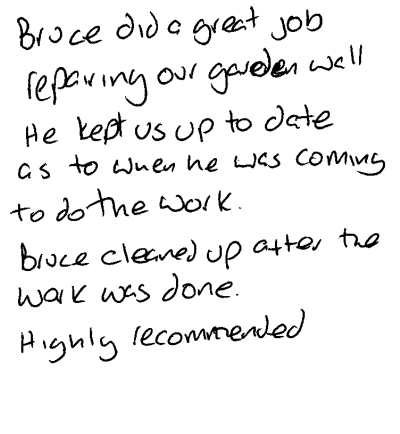 Bruce did a great job
repairing our garden wall
He kept us up to date
as to when he was coming
to do the work.
Bruce cleaned up after the
work was done.
Highly recommended